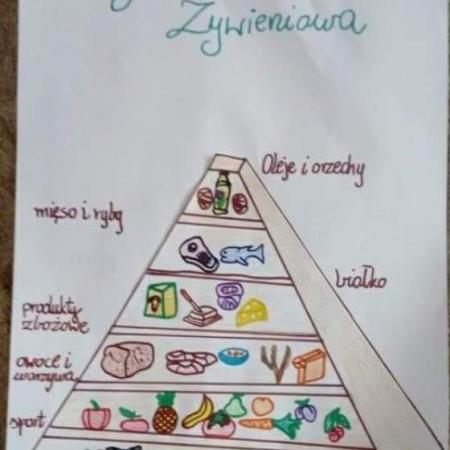 Żywieniowa
Oleje i orzechy
mięso i ryby
białko
produkty
zbożowe
owoce i
warzywa
sport